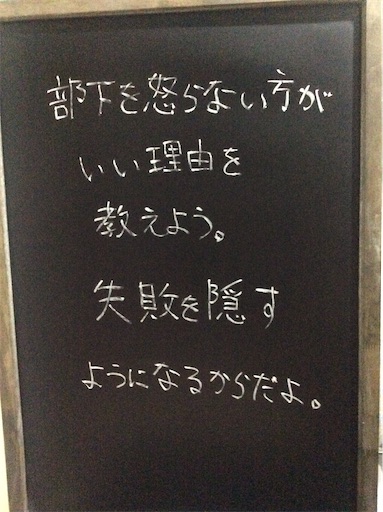 部下を怒らない方が
いい理由を
教えよう。
失敗を隠す
ようになるからだよ。